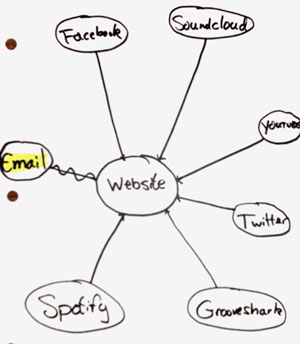 Facebook
Soundcloud
Youtube
Email
Website
Twitter
Spotify
Grooveshark